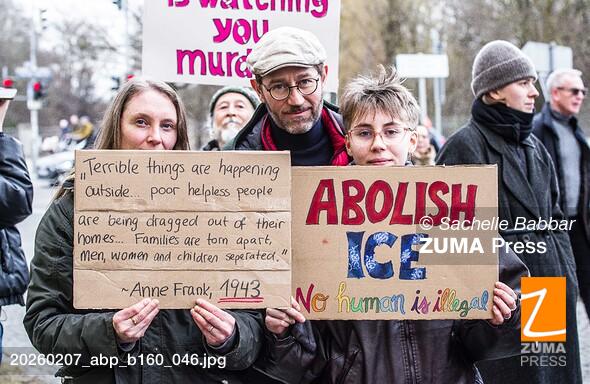 is watching
you
murd
"Terrible things are happening
outside... poor helpless people
are being dragged out of their
homes... Families are torn apart,
men, women and children seperated."
~Anne Frank, 1943
ABOLISH
ICE
No human is illegal
© Sachelle Babbar
ZUMA Press
20260207_abp_b160_046.jpg
Z
ZUMA
PRESS